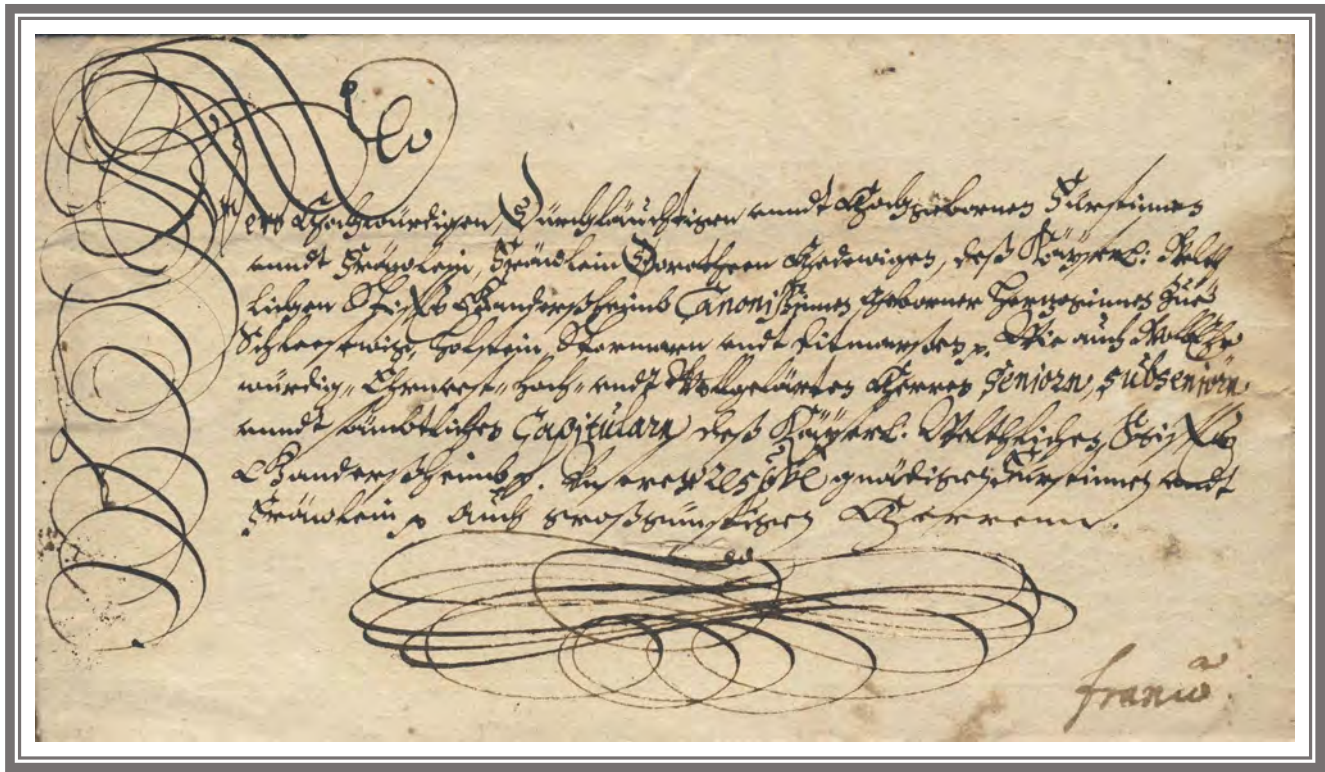 Der Hochwürdigen, Dürchläüchtigen unndt Hochgebornen Fürstinnen
unndt Fräwlein, Fräwlein Dorotheen Hedewigen, deß Käyserl: Welt
lichen Stiffts Ganderßheimb Canonißinnen, Geborner Hertzoginnen Zue
Schleeßwieg, Holstein, Stormarn undt Ditmarschen p. Wie auch WollEhr
würdig„ Ehrnvest„ Hoch„ undt Wollgelärten Herren Seniorn, Subseniorn
unndt sämbtlichen Capitularn deß Käyserl: Weltlichen Stiffts
Ganderßheimb p. Unserer gnädigen Fürstinnen undt
Fräwlein p auch großgünstigen Herrenn.
franco